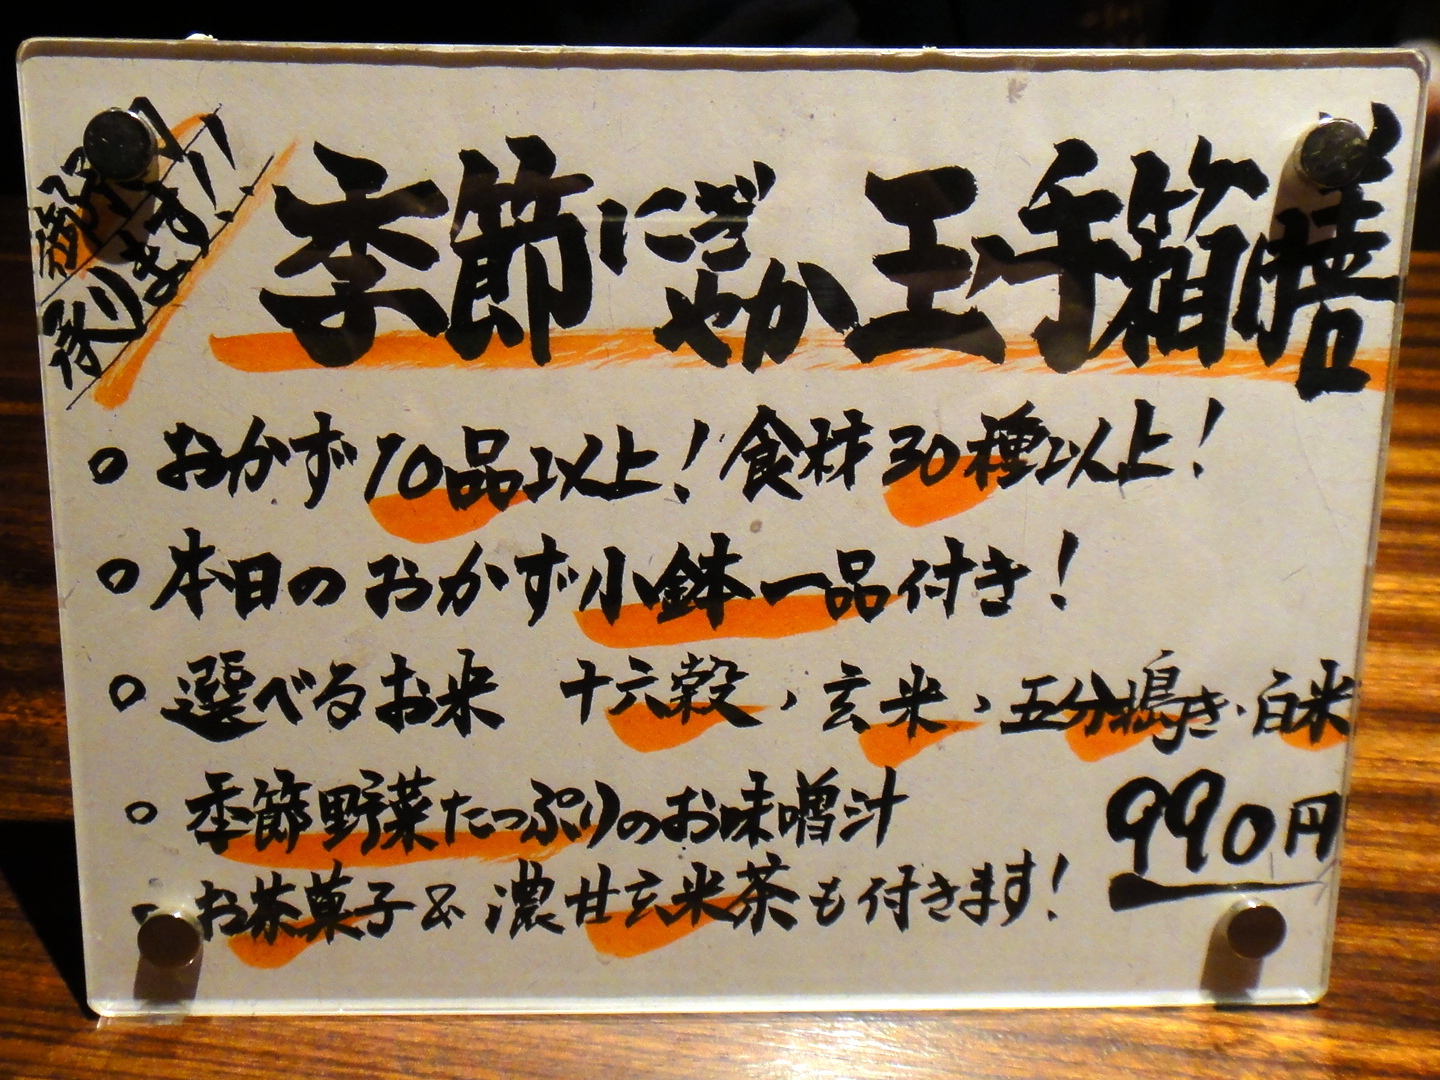 承ります!!
季節にぎやか玉手箱膳
○おかず10品以上!食材30種以上!
○本日のおかず小鉢一品付き!
○選べるお米 十六穀、玄米、五分搗き、白米
○季節野菜たっぷりのお味噌汁
990円
お茶菓子&濃甘玄米茶も付きます!